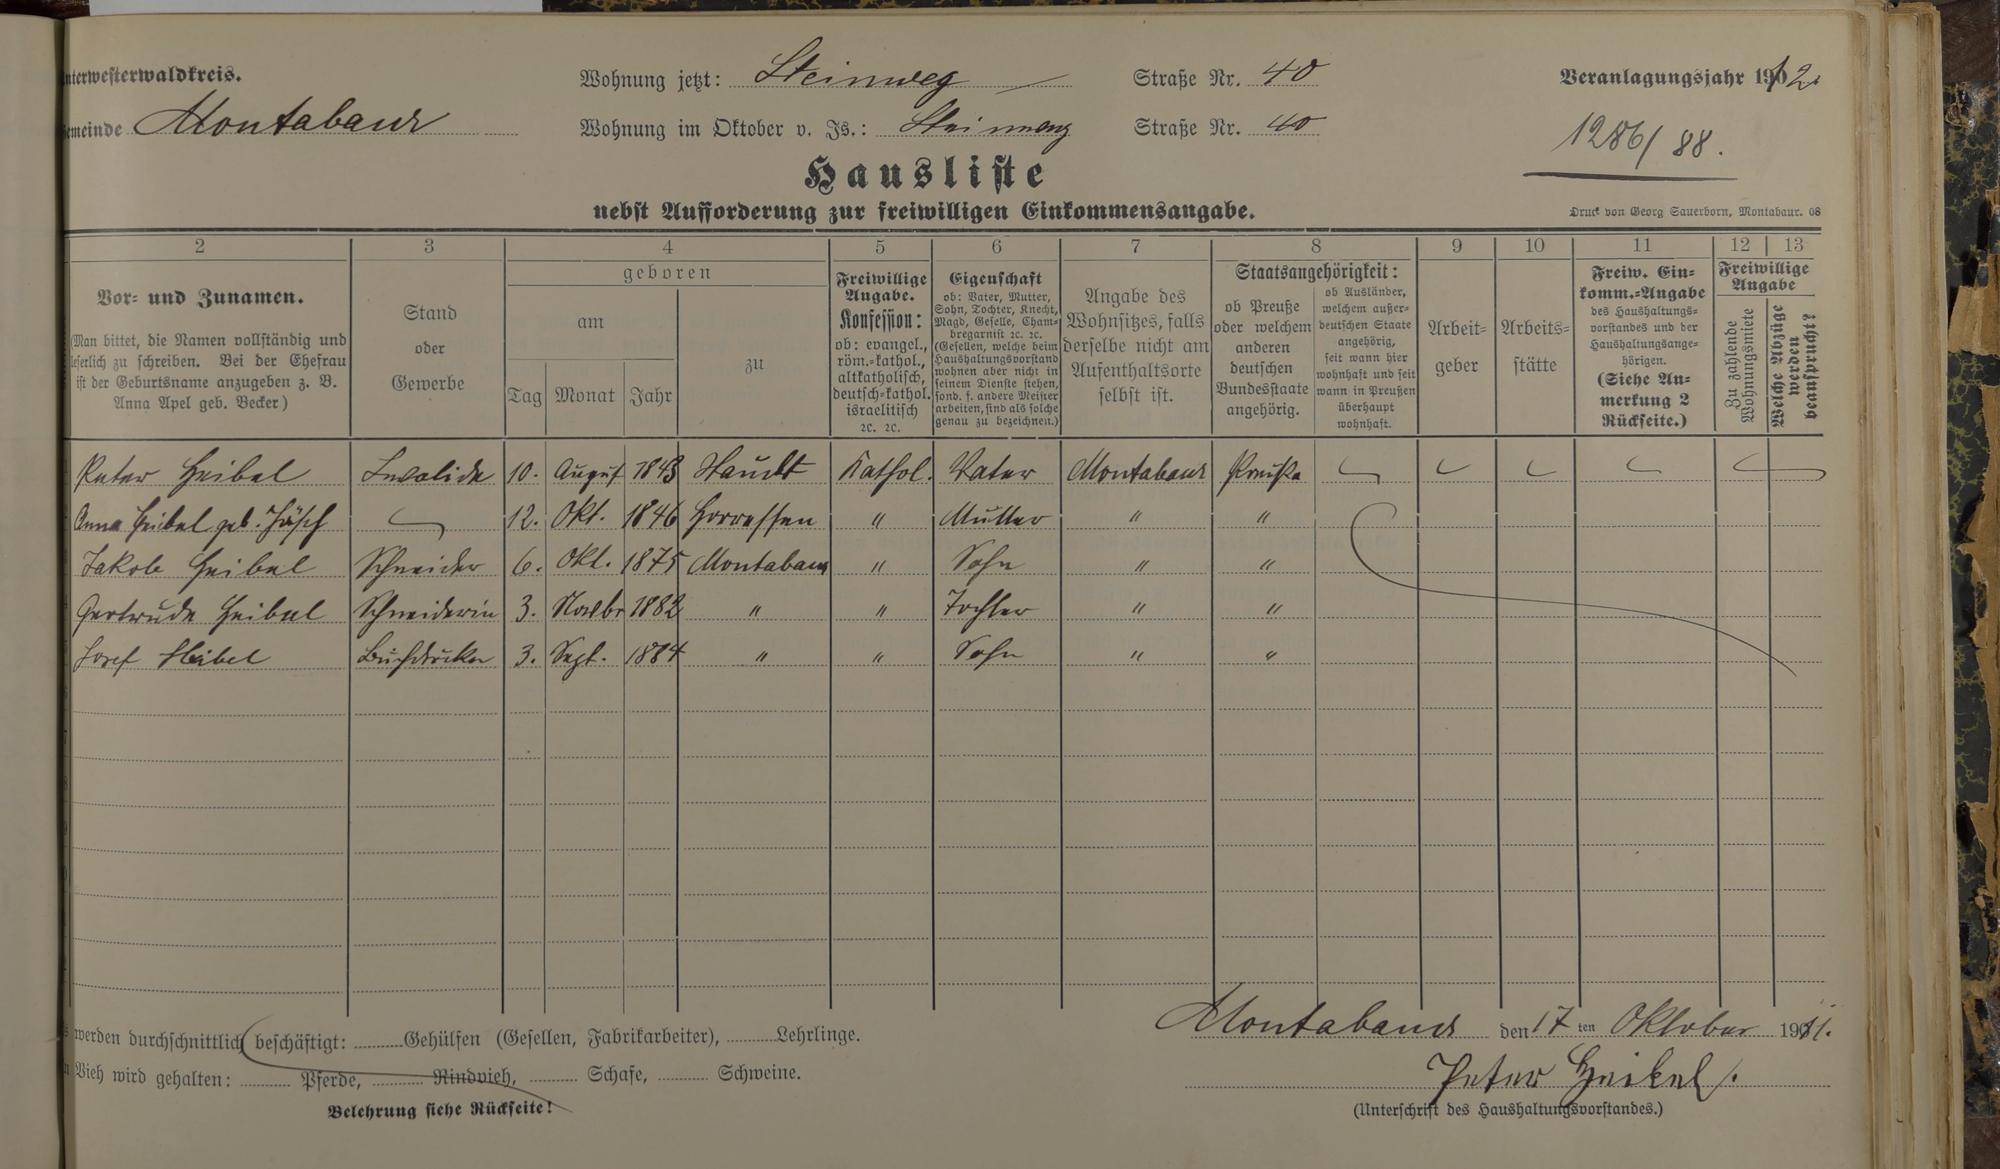 nterwesterwaldkreis.
Wohnung jetzt: Steinweg Straße Nr. 40
Veranlagungsjahr 1912.
emeinde Montabaur
Wohnung im Oktober v. Js.: Steinweg Straße Nr. 40
1286/88.
Hausliste
nebst Aufforderung zur freiwilligen Einkommensangabe.
Druck von Georg Sauerborn, Montabaur. 08
2 3 4 5 6 7 8 9 10 11 12 13
Vor- und Zunamen.
(Man bittet, die Namen vollständig und
leserlich zu schreiben. Bei der Ehefrau
ist der Geburtsname anzugeben z. B.
Anna Apel geb. Becker)
Stand
oder
Gewerbe
geboren
am
Tag Monat Jahr
zu
Freiwillige
Angabe.
Konfession:
ob: evangel.,
röm.-kathol.,
altkatholisch,
deutsch-kathol.
israelitisch
ꝛc. ꝛc.
Eigenschaft
ob: Vater, Mutter,
Sohn, Tochter, Knecht,
Magd, Geselle, Cham-
bregarnist ꝛc. ꝛc.
(Gesellen, welche beim
Haushaltungsvorstand
wohnen aber nicht in
seinem Dienste stehen,
sond. f. andere Meister
arbeiten, sind als solche
genau zu bezeichnen.)
Angabe des
Wohnsitzes, falls
derselbe nicht am
Aufenthaltsorte
selbst ist.
Staatsangehörigkeit:
ob Preuße
oder welchem
anderen
deutschen
Bundesstaate
angehörig.
ob Ausländer,
welchem außer-
deutschen Staate
angehörig,
seit wann hier
wohnhaft und seit
wann in Preußen
überhaupt
wohnhaft.
Arbeit-
geber
Arbeits-
stätte
Freiw. Ein-
komm.-Angabe
des Haushaltungs-
vorstandes und der
Haushaltungsange-
hörigen.
(Siehe An-
merkung 2
Rückseite.)
Freiwillige
Angabe
Zu zahlende
Wohnungsmiete
Welche Abzüge
werden
beansprucht?
Peter Heibel Invalide 10. August 1843 Staudt Kathol. Vater Montabaur Preuße
Anna Heibel geb. 12. Okt. 1846 Horressen " Mutter " "
Jakob Heibel Schneider 6. Okt. 1875 Montabaur " Sohn " "
Gertrude Heibel Schneiderin 3. Novbr 1882 " " Tochter " "
Josef Heibel Buchdrucker 3. Sept. 1884 " " Sohn " "
werden durchschnittlich beschäftigt: Gehülfen (Gesellen, Fabrikarbeiter), Lehrlinge.
Montabaur den 17 ten Oktober 1911.
Vieh wird gehalten: Pferde, Rindvieh, Schafe, Schweine.
Peter Heibel
Belehrung siehe Rückseite!
(Unterschrift des Haushaltungsvorstandes.)